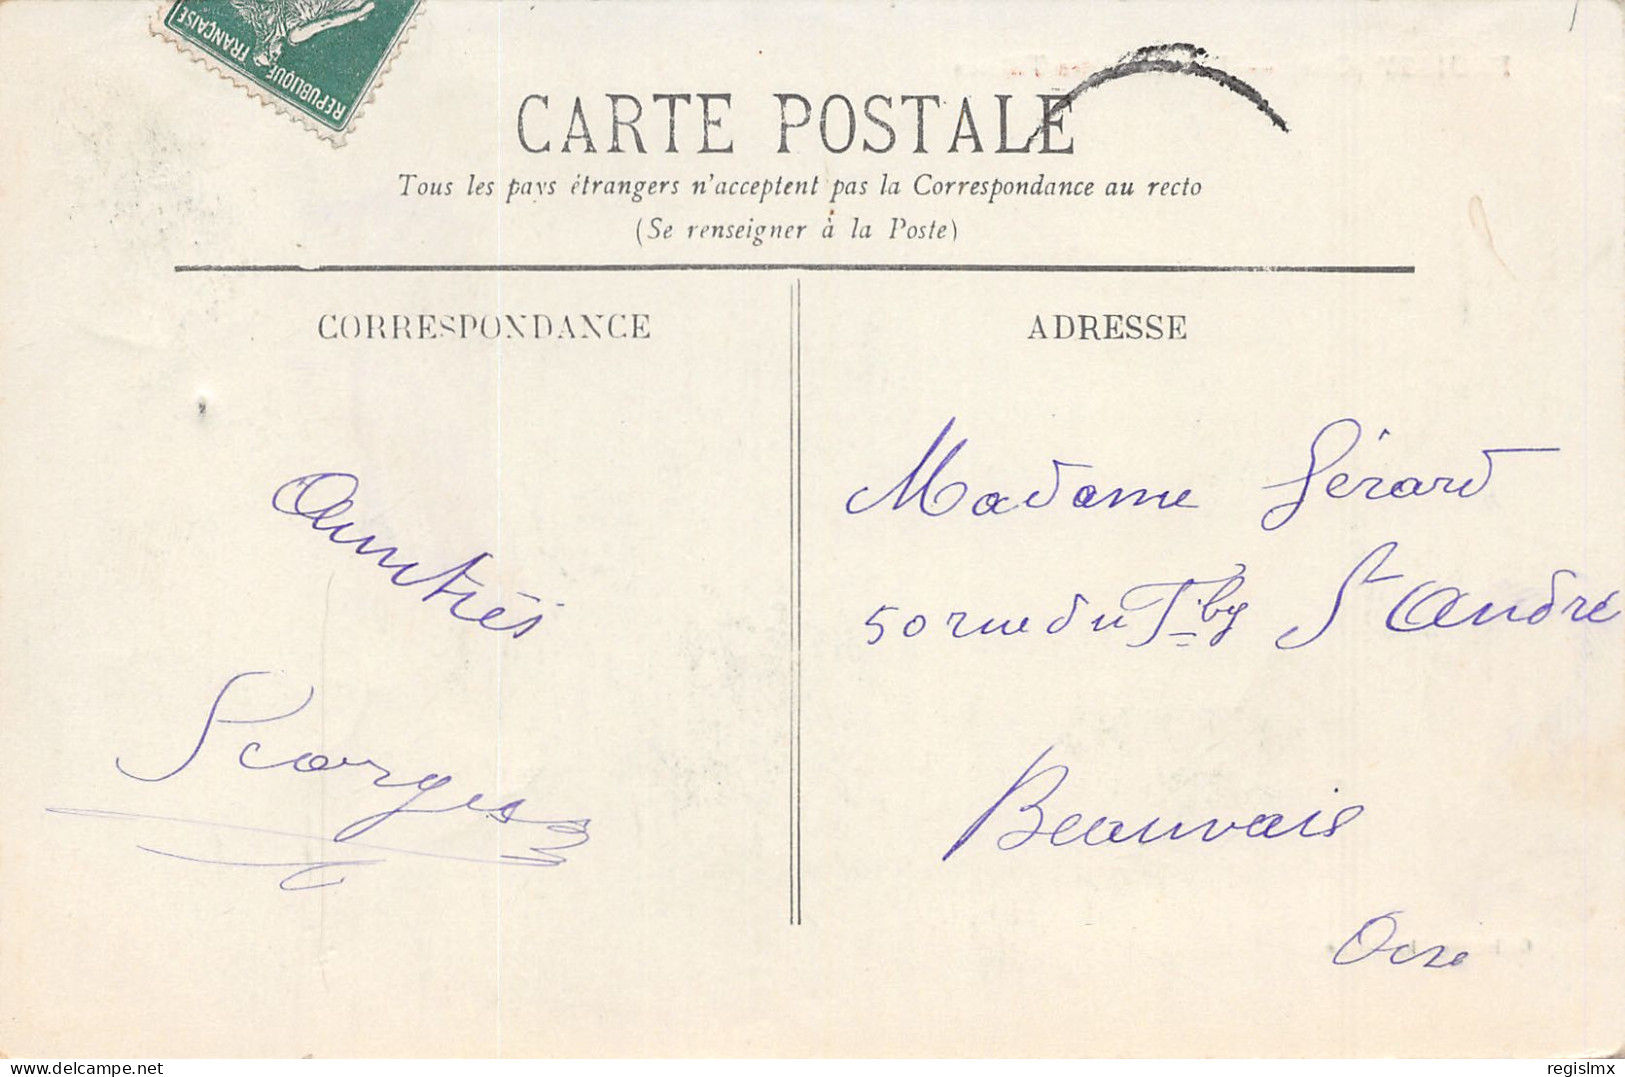 REPUBLIQUE FRANÇAISE
CARTE POSTALE
Tous les pays étrangers n'acceptent pas la Correspondance au recto
(Se renseigner à la Poste)
CORRESPONDANCE
Amitiés
Georges
ADRESSE
Madame Gérard
50 rue du Fbg St André
Beauvais
Oise
delcampe.net
regislmx